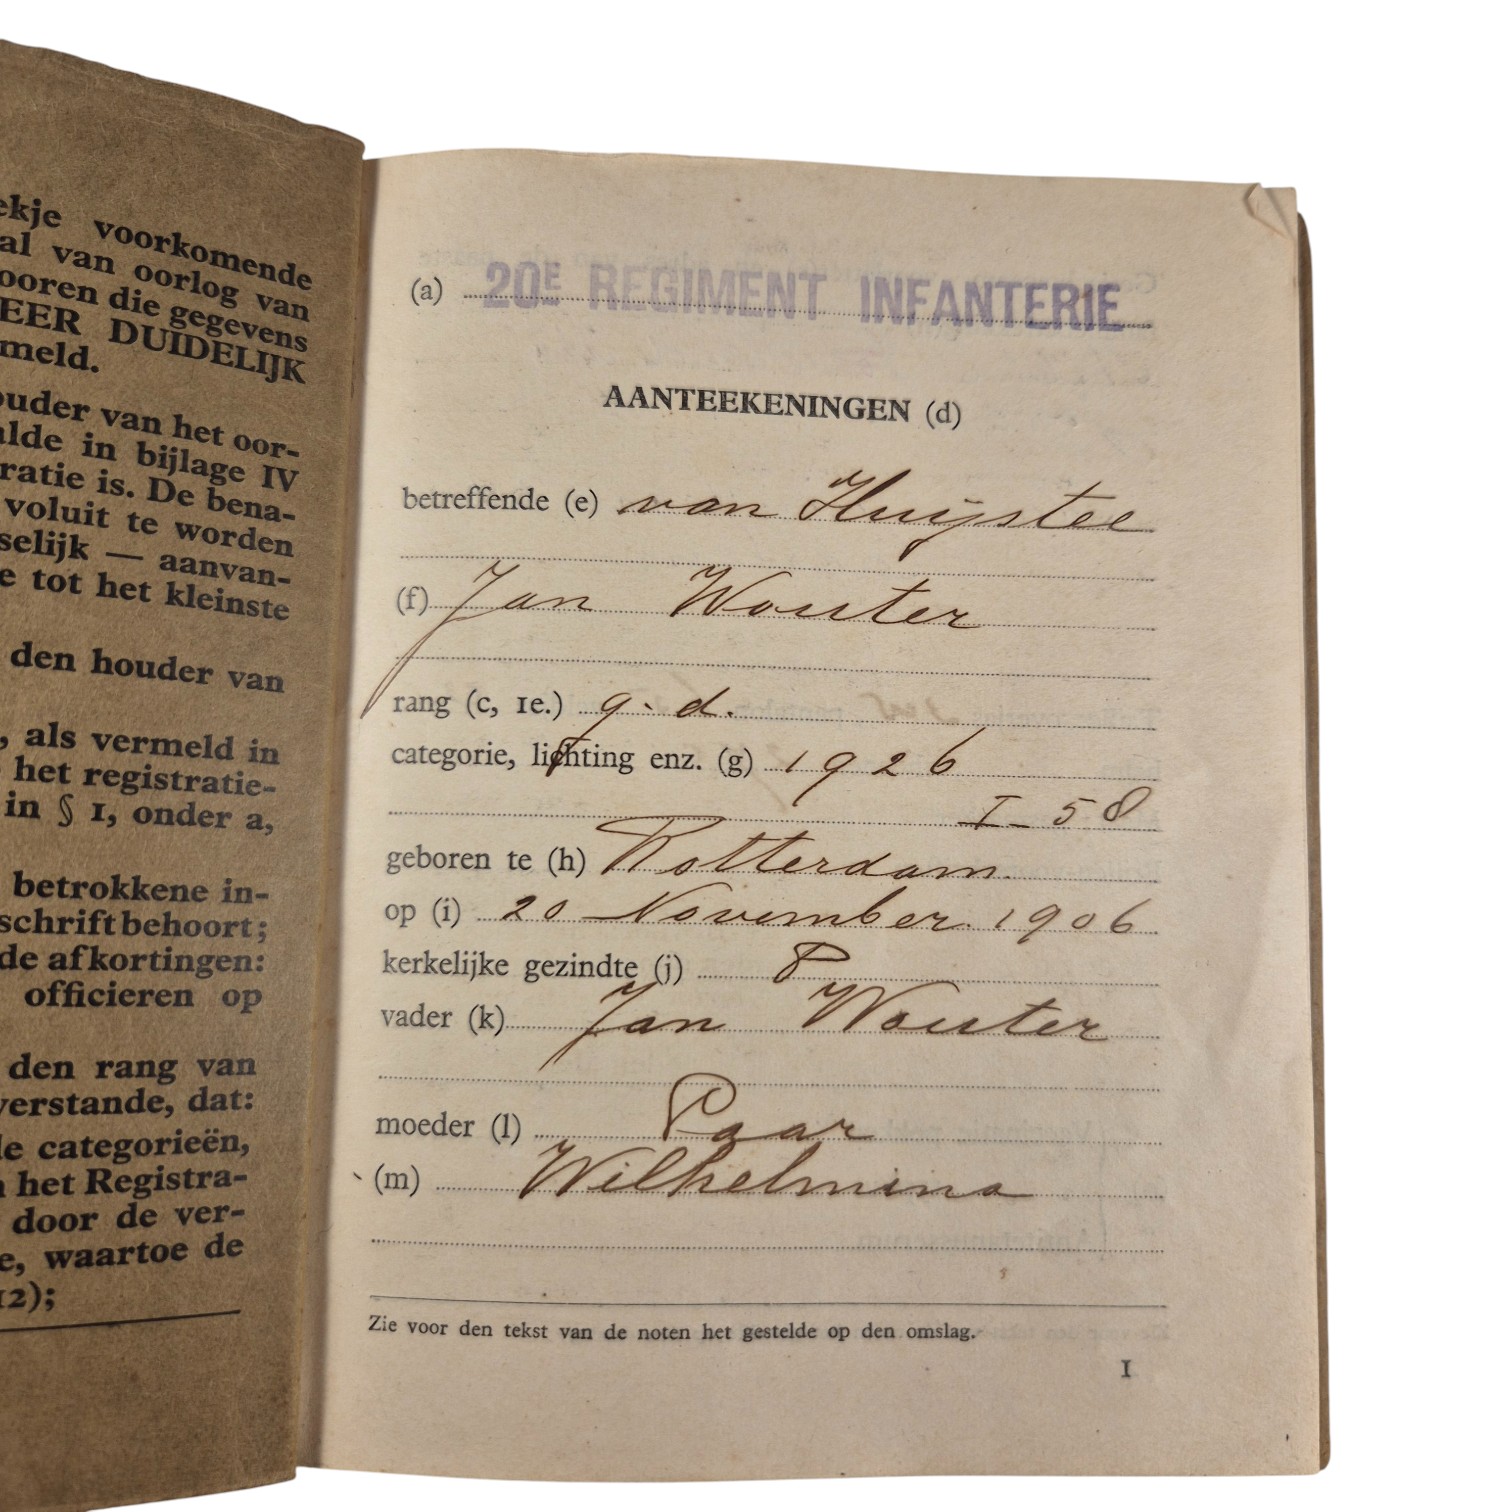 ekje voorkomende
al van oorlog van
ooren die gegevens
EER DUIDELIJK
meld.
ouder van het oor-
alde in bijlage IV
ratie is. De bena-
voluit te worden
selijk — aanvan-
e tot het kleinste
den houder van
, als vermeld in
het registratie-
in § 1, onder a,
betrokkene in-
schrift behoort;
de afkortingen:
officieren op
den rang van
verstande, dat:
le categorieën,
n het Registra-
door de ver-
e, waartoe de
12);
(a) 20E REGIMENT INFANTERIE
AANTEEKENINGEN (d)
betreffende (e) van Huijstee
(f) Jan Wouter
rang (c, 1e.) g. d.
categorie, lichting enz. (g) 1926
I – 58
geboren te (h) Rotterdam.
op (i) 20 November. 1906.
kerkelijke gezindte (j) P
vader (k) Jan Wouter
moeder (l) Paar
(m) Wilhelmina
Zie voor den tekst van de noten het gestelde op den omslag.
1